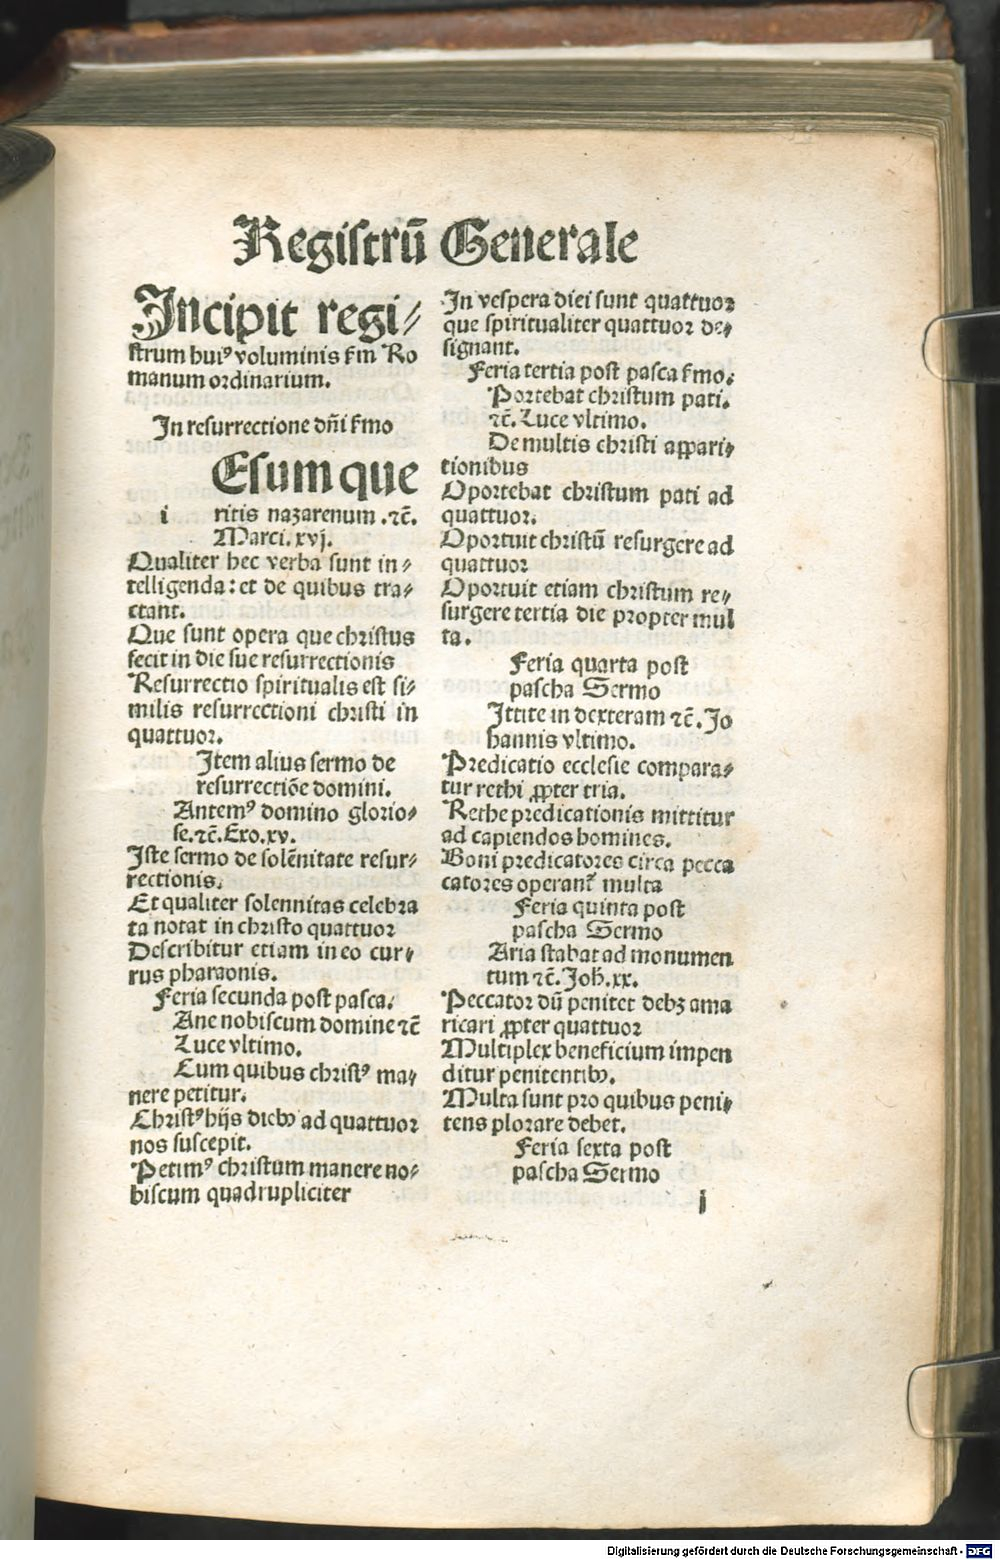 Registrū Generale
Incipit regi⸗
strum huiꝰ voluminis ẜm Ro
manum ordinarium.
In resurrectione dn̄i ẜmo
Esum que
i ritis nazarenum .⁊c̄.
Marci. xvj.
Qualiter hec verba sunt in⸗
telligenda: et de quibus tra⸗
ctant.
Que sunt opera que christus
fecit in die sue resurrectionis
Resurrectio spiritualis est si⸗
milis resurrectioni christi in
quattuor.
Item alius sermo de
resurrectiōe domini.
Antemꝰ domino glorio⸗
se.⁊c̄.Exo.xv.
Iste sermo de solēnitate resur⸗
rectionis.
Et qualiter solennitas celebra
ta notat in christo quattuor
Describitur etiam in eo cur⸗
rus pharaonis.
Feria secunda post pasca.
Ane nobiscum domine ⁊c̄
Luce vltimo.
Cum quibus christꝰ ma⸗
nere petitur.
Christꝰ hijs diebꝰ ad quattuor
nos suscepit.
Petimꝰ christum manere no⸗
biscum quadrupliciter
In vespera diei sunt quattuor
que spiritualiter quattuor de⸗
signant.
Feria tertia post pasca ẜmo.
Portebat christum pati.
⁊c̄. Luce vltimo.
De multis christi appari⸗
tionibus
Oportebat christum pati ad
quattuor.
Oportuit christū resurgere ad
quattuor
Oportuit etiam christum re⸗
surgere tertia die propter mul
ta.
Feria quarta post
pascha Sermo
Ittite in dexteram ⁊c̄. Jo
hannis vltimo.
Predicatio ecclesie compara⸗
tur rethi ꝓpter tria.
Rethe predicationis mittitur
ad capiendos homines.
Boni predicatores circa pecca
catores operant᷑ multa
Feria quinta post
pascha Sermo
Aria stabat ad monumen
tum ⁊c̄. Joh̄. xx.
Peccator dū penitet debꝫ ama
ricari ꝓpter quattuor
Multiplex beneficium impen
ditur penitentibꝰ.
Multa sunt pro quibus peni⸗
tens plorare debet.
Feria sexta post
pascha Sermo
j
Digitalisierung gefördert durch die Deutsche Forschungsgemeinschaft - DFG